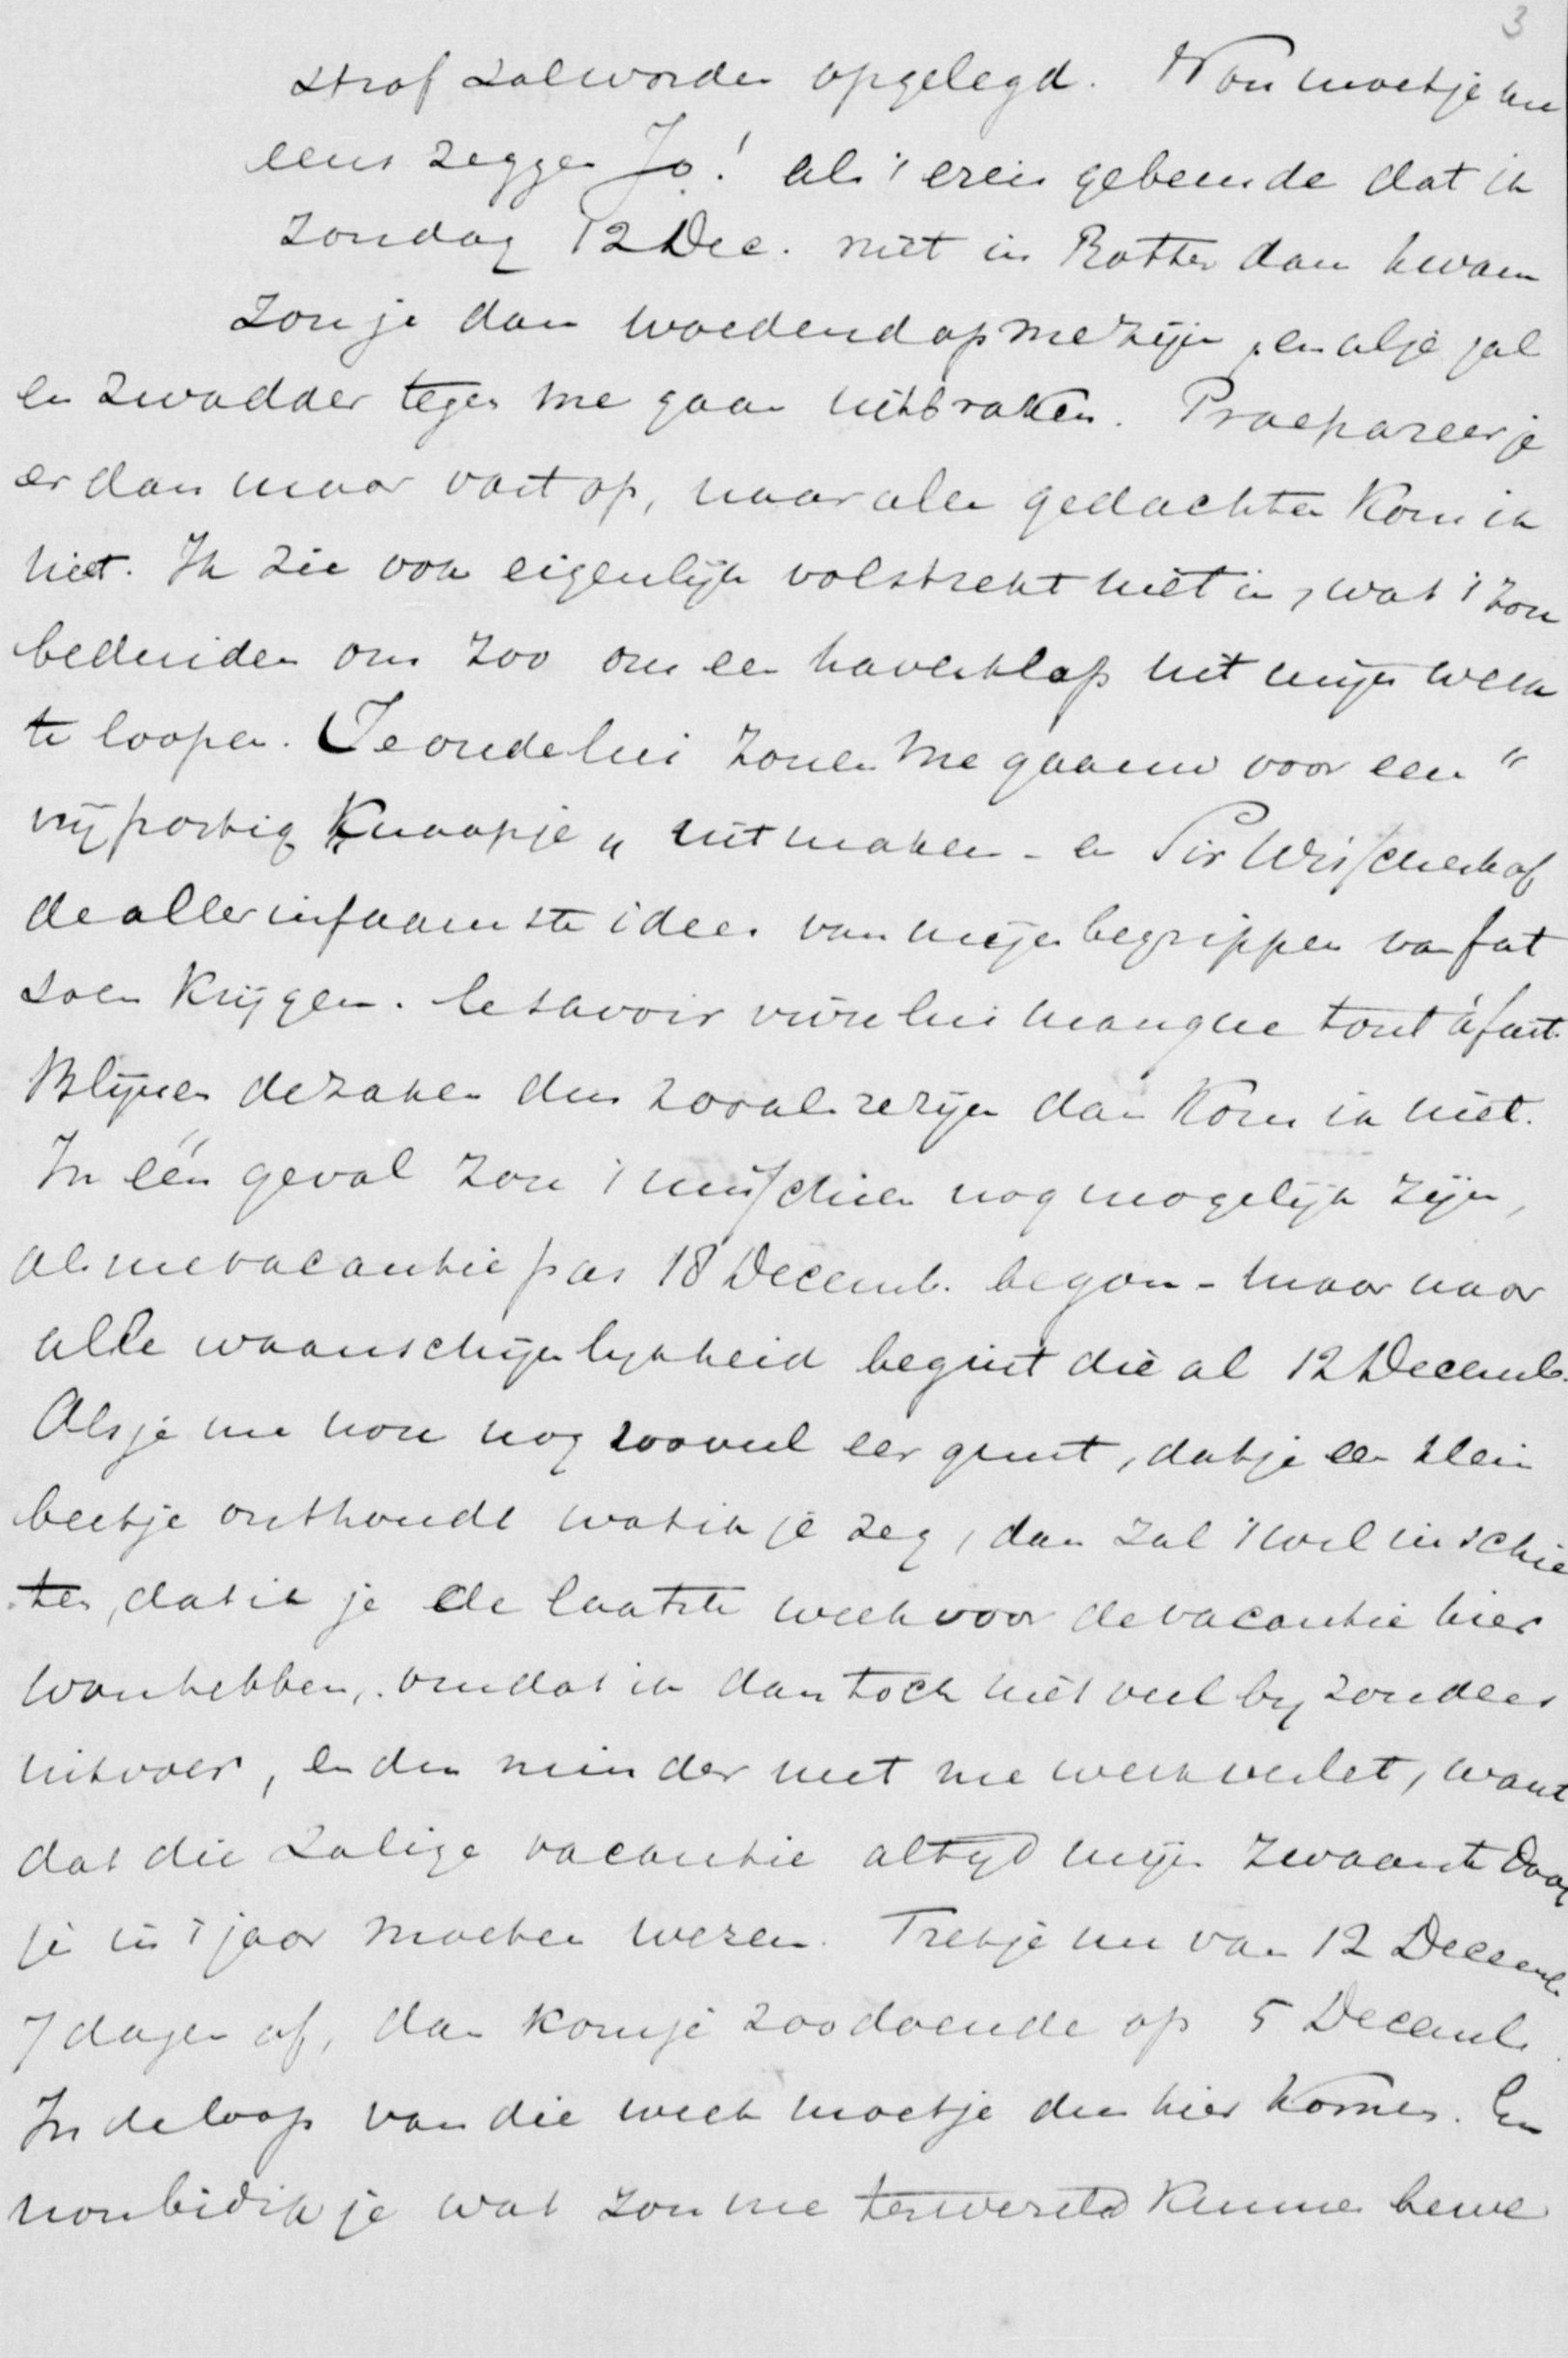 3
straf zal worden opgelegd. Nou moet je nu
eens zeggen Jo! als 't ereis gebeurde dat ik
Zondag 12 Dec. niet in Rotterdam kwam
zou je dan woedend op me zijn, en al je gal
en zwadder tegen me gaan uitbraken. Praepareer je
er dan maar vast op, naar alle gedachten kom ik
niet. Ik zie ook eigenlijk volstrekt niet in, wat 't zou
beduiden om zoo om een haverklap uit mijn werk
te loopen. Je oudelui zouen me gaauw voor een "
vrijpostig knaapje " uitmaken - en Sir Wisscherhof
de allerinfaamste idees van mijn begrippen van fat
soen krijgen. le savoir vivre lui manque tout à fait.
Blijven de zaken dus zooals ze zijn dan kom ik niet.
In één geval zou 't misschien nog mogelijk zijn,
als me vacantie pas 18 Decemb. begon - maar naar
alle waarschijnlijkheid begint die al 12 Decemb.
Als je me nou nog zooveel eer gunt, dat je een klein
beetje onthoudt wat ik je zeg, dan zal 't wel in schie
ten, dat ik je de laatste week voor de vacantie hier
wou hebben, omdat ik dan toch niet veel byzonders
uitvoer, en dus minder met me werk verlet, want
dat die zalige vacantie altyd mijn zwaarste daag
je in 't jaar moeten wezen. Trek je nu van 12 Decemb.
7 dagen af, dan kom je zoodoende op 5 Decemb.
In de loop van die week moet je dus hier komen. En
nou bid ik je wat zou me ter wereld kunnen bewe